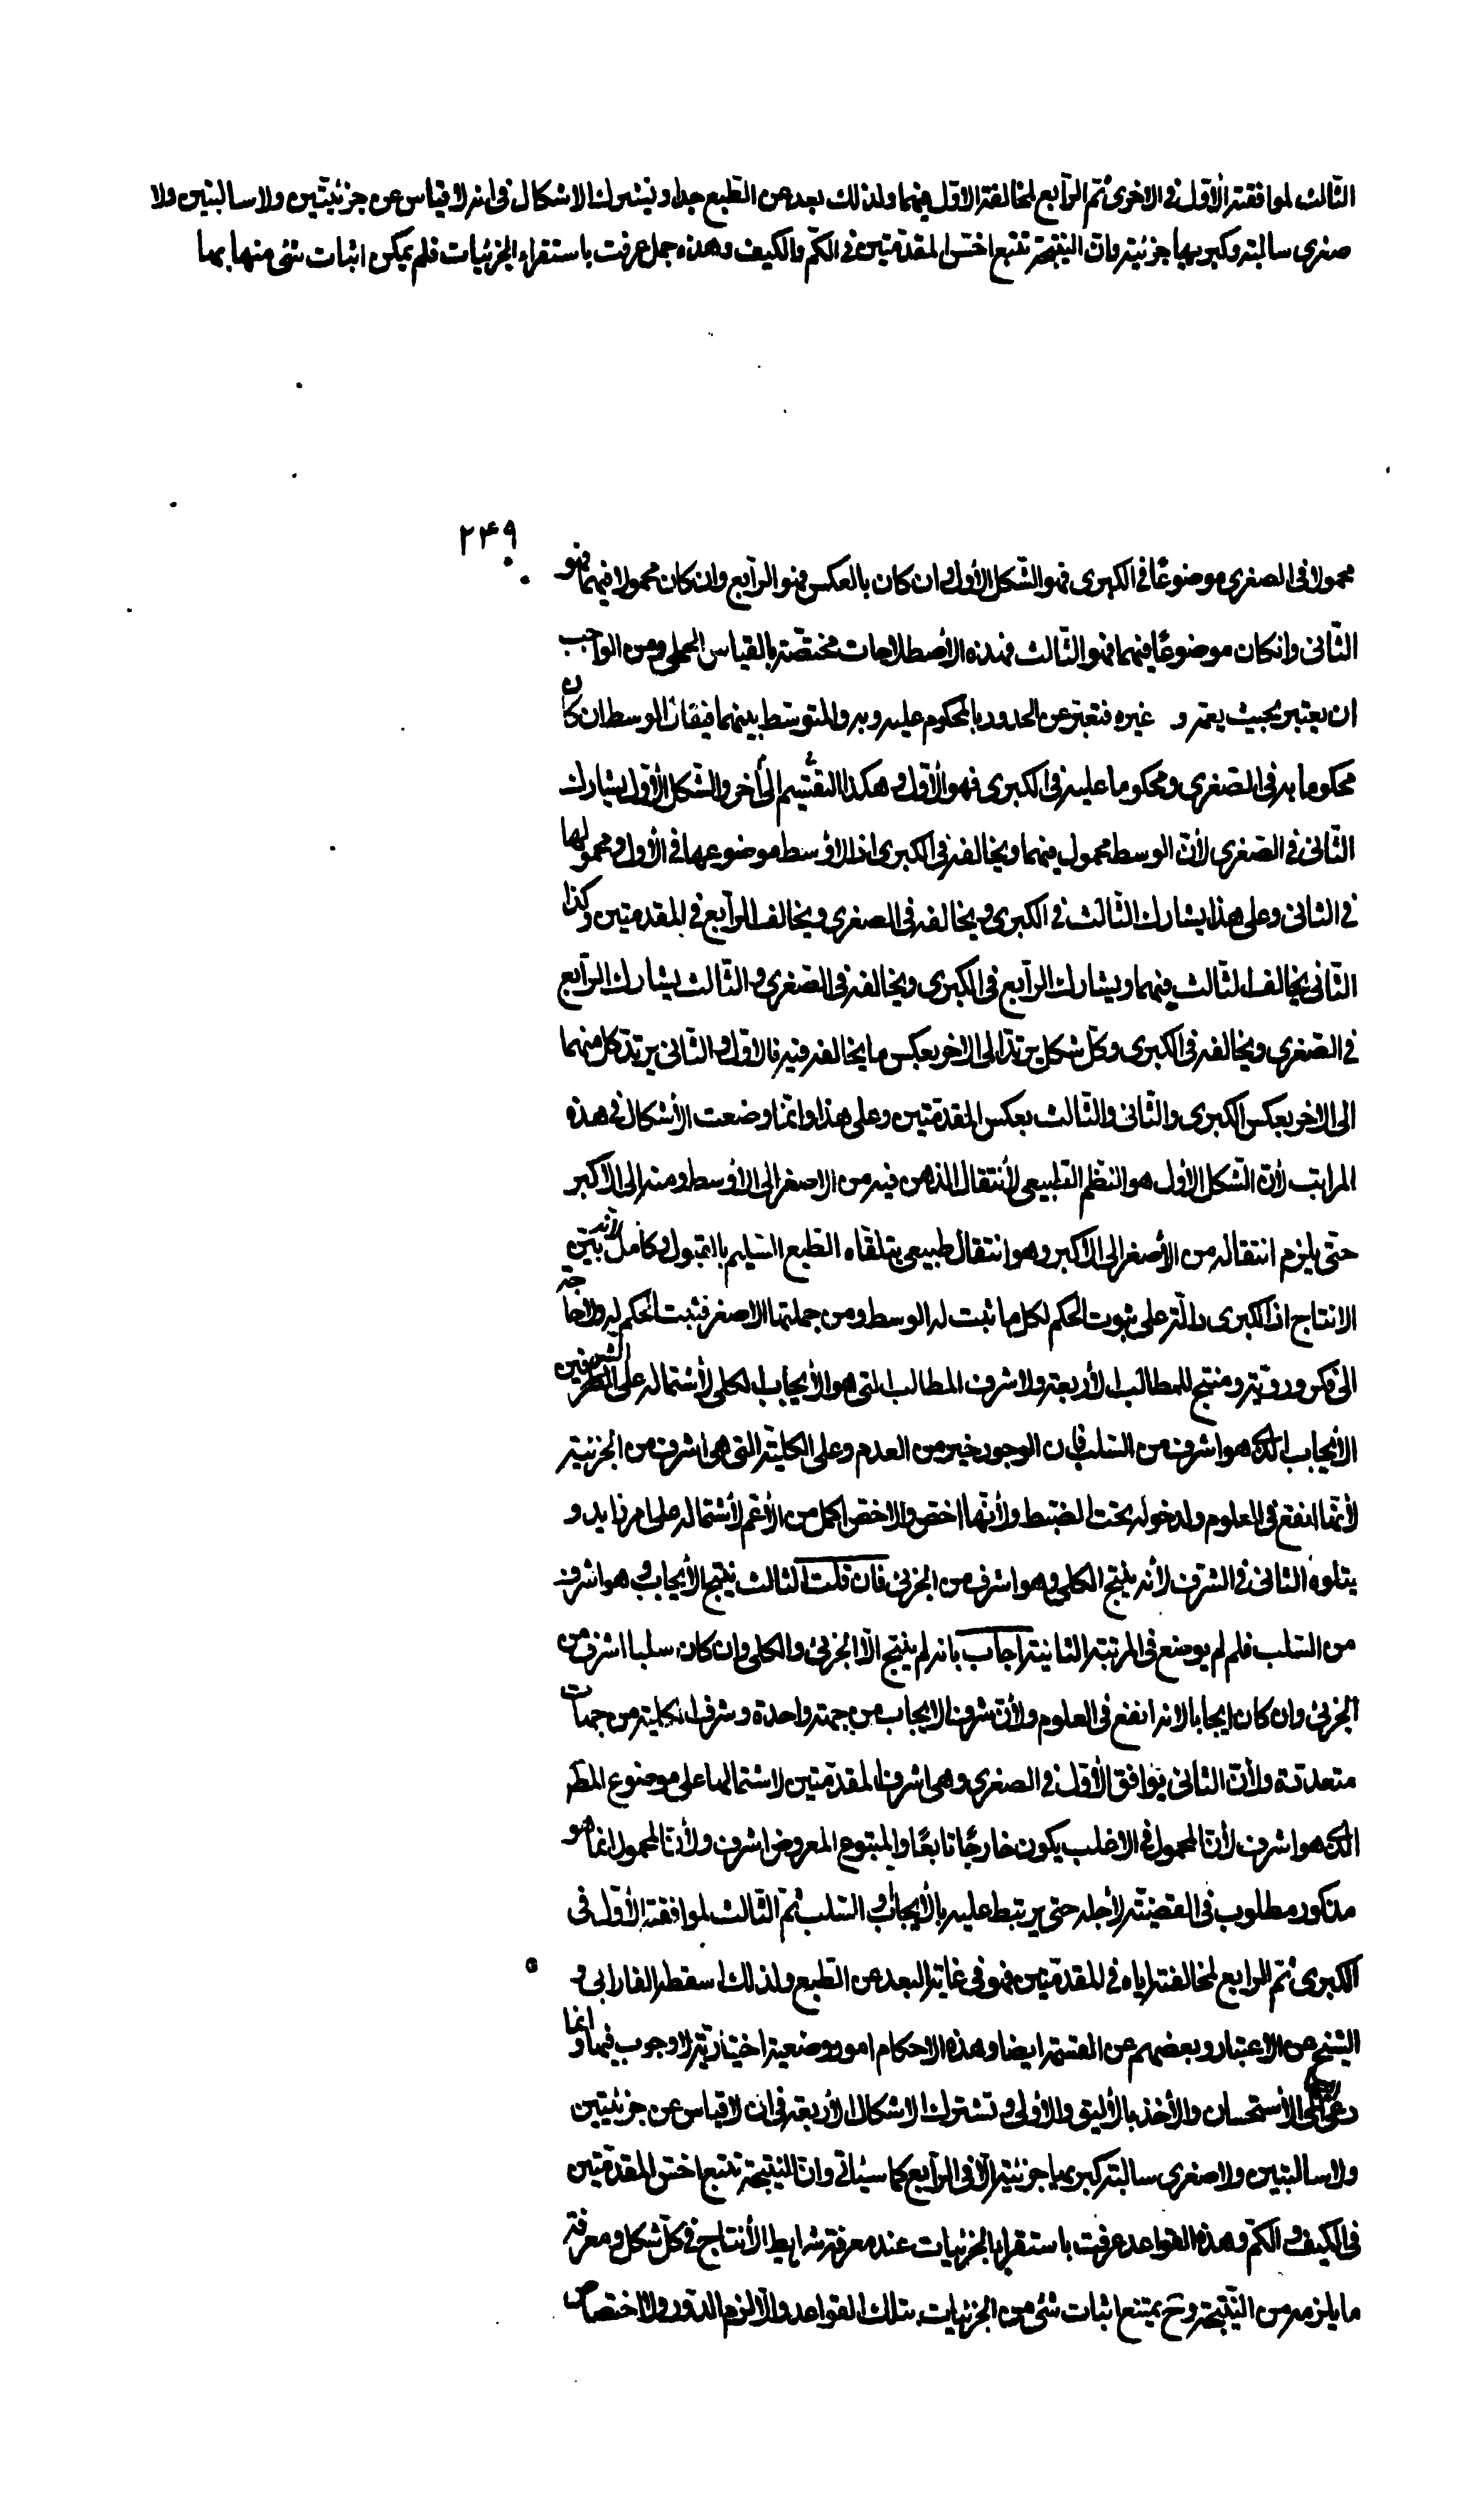 الثالث لموافقته الأول فى الاخرى ثم الرابع لمخالفته الاول فيهما ولذلك بعد عن الطبع جدا وتشترك الاشكال فى انه لا قياس عن جزئيتين ولا سالبتين ولا
صغرى سالبة وكبريها جزئية وان النتيجة تتبع اخس المقدمتين فى الكم والكيف وهذه جمل عرفت باستقراء الجزئيات فلم يمكن اثبات شئ منها بها
٢٤٩
محمولا فى الصغرى موضوعًا فى الكبرى فهو الشكل الأول وان كان بالعكس فهو الرابع وان كان محمولا فيهما فهو
الثانى وانكان موضوعًا فيهما فهو الثالث فهذه الأصطلاحات مختصة بالقياس الحملى ومن الواجب
ان يعتبر بحيث يعمه و غيره فنعبر عن الحدود بالمحكوم عليه وبه والمتوسط بينهما فيقال الوسط ان كان
محكوما به فى الصغرى ومحكوما عليه فى الكبرى فهو الأول وهكذا التقسيم الى أخر والشكل الأول يشارك
الثانى فى الصغرى لأن الوسط محمول فيهما ويخالفه فى الكبرى اذ الاوسط موضوعها فى الأول ومحمولها
فى الثانى وعلى هذا يشارك الثالث فى الكبرى ويخالفه فى الصغرى ويخالف الرابع فى المقدمتين وكذا
الثانى يخالف الثالث فيهما ويشارك الرابع فى الكبرى ويخالفه فى الصغرى والثالث يشارك الرابع
فى الصغرى ويخالفه فى الكبرى وكل شكل يرتد الى الاخر بعكس ما يخالفه فيه فالاول والثانى يرتد كل منهما
الى الاخر بعكس الكبرى والثانى والثالث بعكس المقدمتين وعلى هذا وانما وضعت الأشكال فى هذه
المراتب لأن الشكل الأول هو النظم الطبيعى لأنتقال الذهن فيه من الاصغر الى الاوسط ومنه الى الاكبر
حتى يلزم انتقاله من الأصغر الى الاكبر وهو انتقال طبيعى يتلقاه الطبع السليم بالقبول وكامل لأنه بين
الانتاج اذ الكبرى دالة على ثبوت الحكم لكل ما ثبت له الوسط ومن جملتها الاصغر فثبت الحكم له ولا حاجة
الى فكر وروية ومنتج للمطالب الأربعة ولا شرف المطالب التى هو الأيجاب الكلى لأشتماله على الشرفين
الأيجاب الذى هو اشرف من السلب فان الوجود خير من العدم وعلى الكلية التى هى اشرف من الجزئية
لأنها انفع فى العلوم ولدخوله تحت الضبط ولأنها اخص والاخص اكمل من الأعم لأشتماله على امر زايد و
يتلوه الثانى فى الشرف لأنه ينتج الكلى وهو اشرف من الجزئى فان قلت الثالث ينتج الأيجاب وهو اشرف
من السلب فلم لم يوضع فى المرتبة الثانية اجاب بانه لم ينتج الا الجزئى والكلى وان كان سلبا اشرف من
الجزئى وان كان ايجابا لانه انفع فى العلوم ولأن شرف الايجاب من جهة واحدة وشرف الكلية من جهات
متعددة ولأن الثانى يوافق الأول فى الصغرى وهى اشرف المقدمتين لاشتمالها على موضوع المط
الذى هو اشرف لأن المحمول فى الاغلب يكون خارجًا تابعًا والمتبوع المعروض اشرف ولأن المحمول انما هو
مذكور مطلوب فى القضية لأجله حتى يرتبط عليه بالأيجاب والسلب ثم الثالث لموافقته الأول فى
الكبرى ثم الرابع لمخالفته اياه فى المقدمتين فهو فى غاية البعد عن الطبع ولذلك اسقطه الفارابى و
الشيخ عن الاعتبار وبعضهم عن القسمة ايضا وهذه الاحكام امور وضعية اختيارية لا وجوب فيها وانما
الأستحسان والأخذ بالأليق والأولى وتشترك الاشكال الأربعة فى ان لا قياس عن جزئيتين
ولا سالبتين ولا صغرى سالبة كبريها جزئية الا فى الرابع كما سيأتى وان النتيجة تتبع اخس المقدمتين
فى الكيف والكم وهذه القواعد عرفت باستقراء الجزئيات عند معرفة شرايط الأنتاج فى كل شكل ومعرفة
ما يلزمه من النتيجة وح يمتنع اثبات شئ من الجزئيات بتلك القواعد والا لزم الدور ولا اختصاص